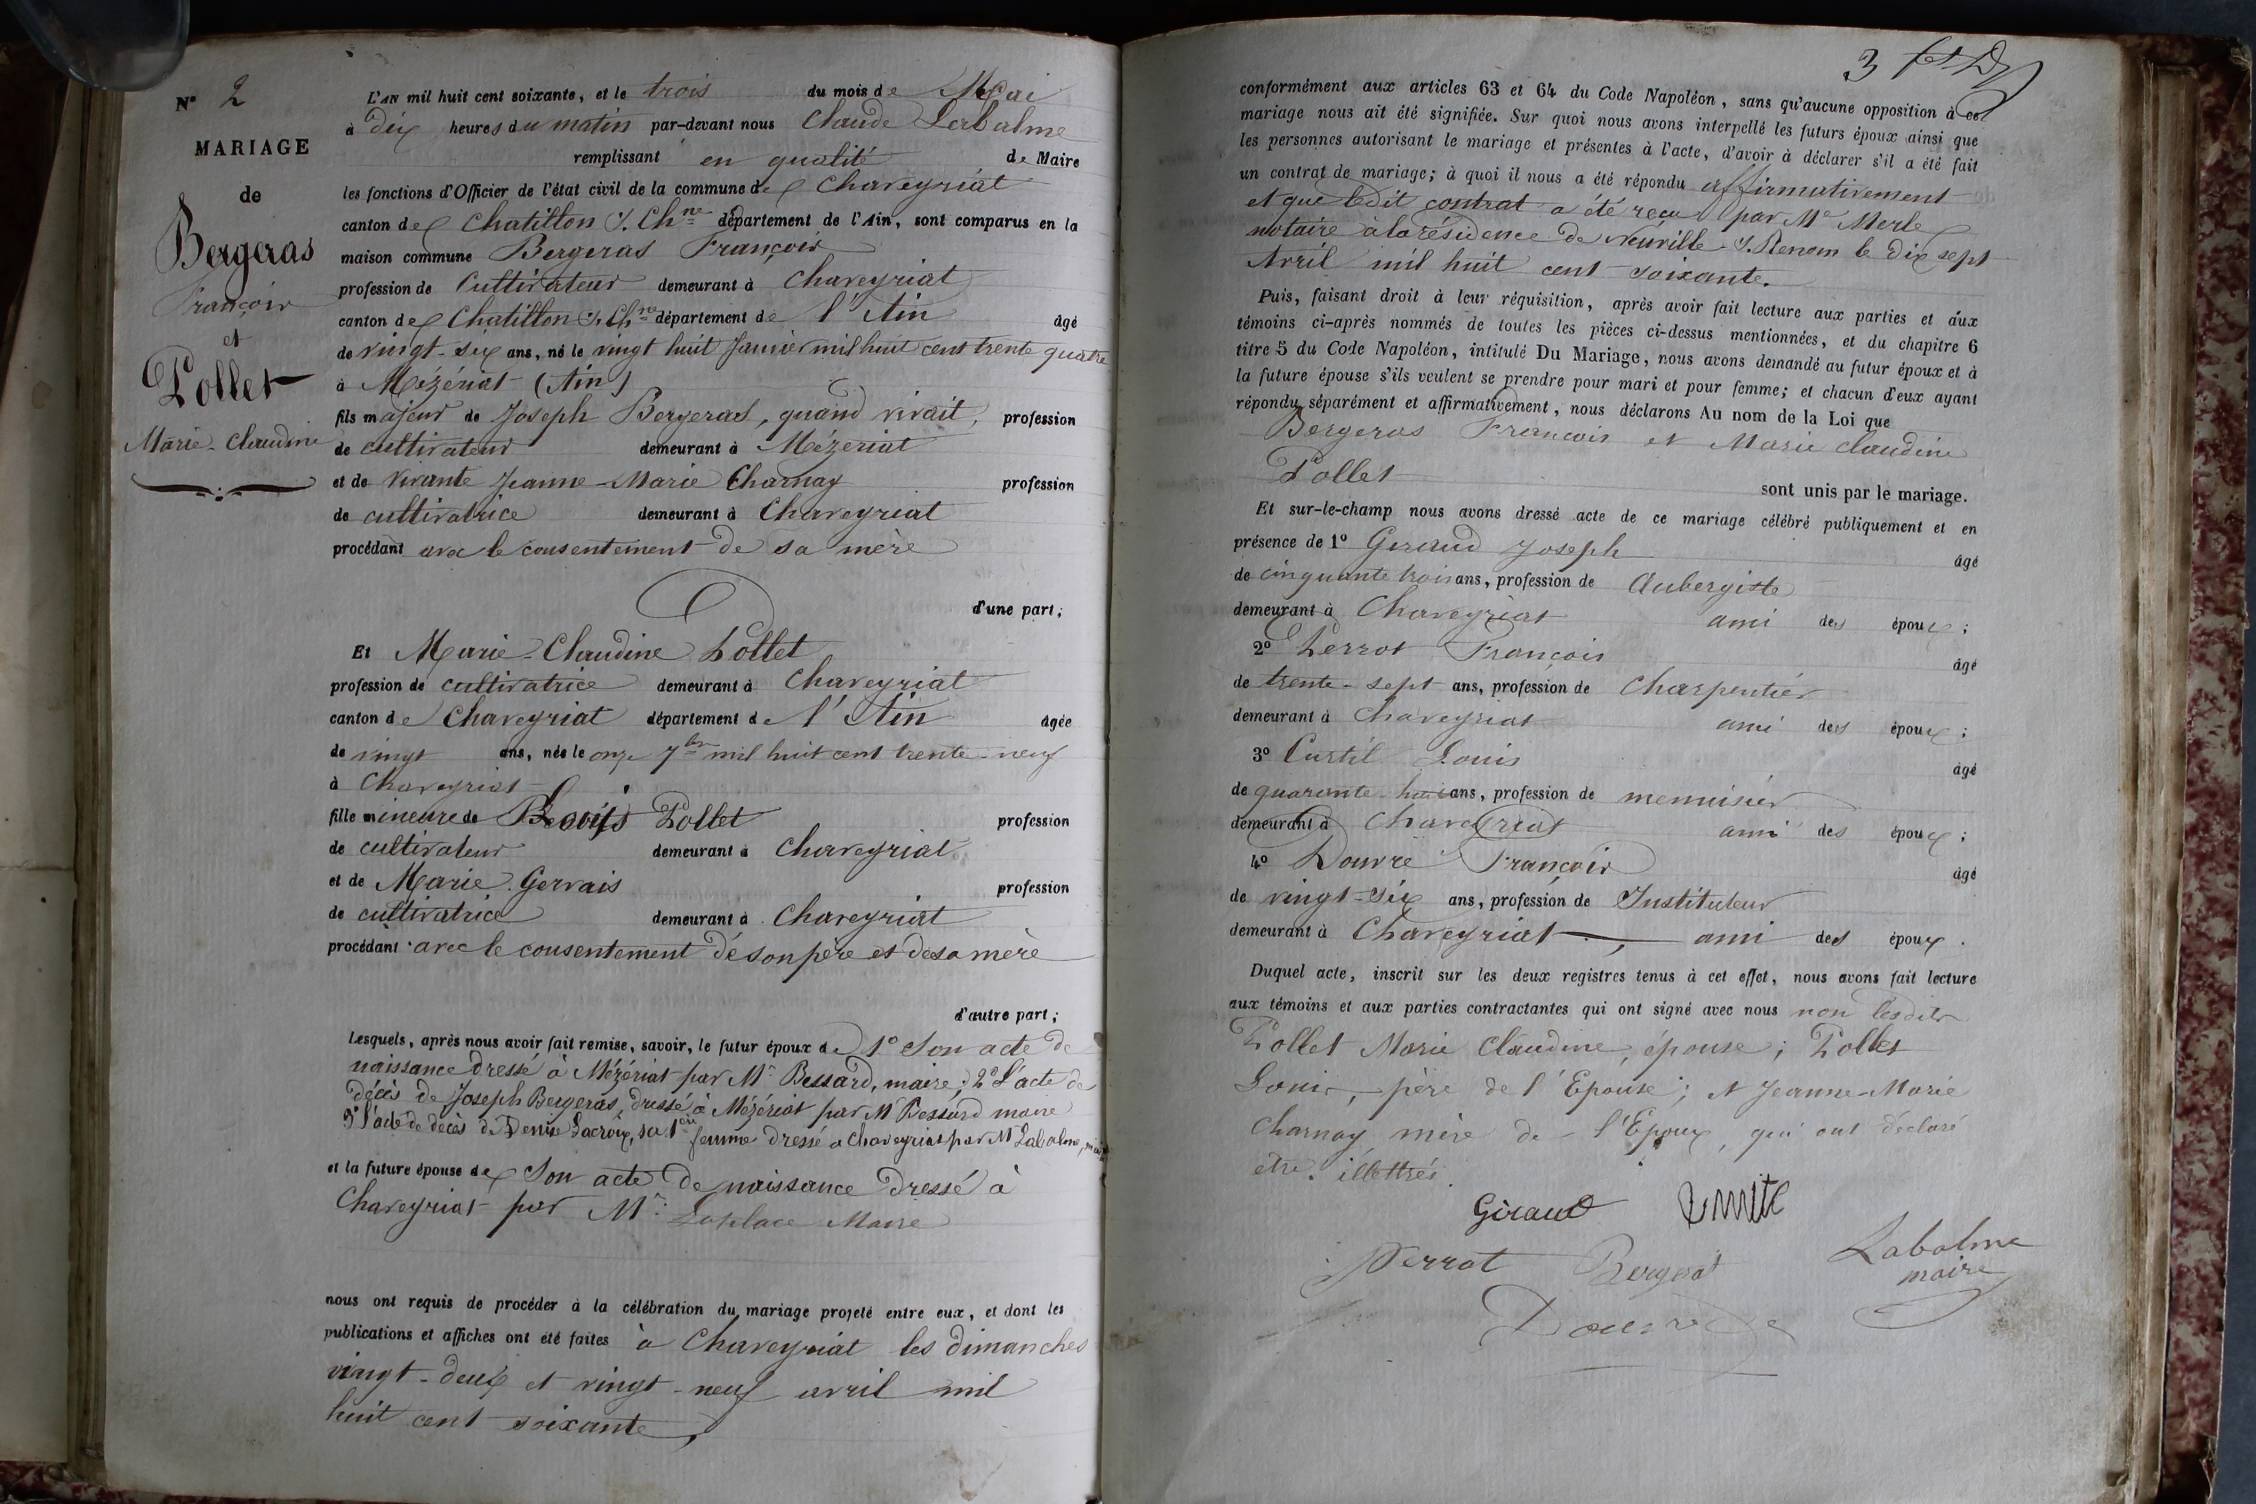 N° 2
MARIAGE
de
Bergeras
François
et
Pollet
Marie-Claudine
L'AN mil huit cent soixante, et le trois du mois de Mai
à dix heures du matin par-devant nous Claude Labalme
remplissant en qualité de Maire
les fonctions d'Officier de l'état civil de la commune de Chaveyriat
canton de Chatillon s. Chne département de l'Ain, sont comparus en la
maison commune Bergeras François
profession de Cultivateur demeurant à Chaveyriat
canton de Chatillon s. Chne département de l'Ain âgé
de vingt-six ans, né le vingt huit Janvier mil huit cent trente quatre
à Mézériat (Ain)
fils majeur de Joseph Bergeras, quand vivait, profession
de cultivateur demeurant à Mézeriat
et de vivante Jeanne-Marie Charnay profession
de cultivatrice demeurant à Chaveyriat
procédant avec le consentement de sa mère
d'une part;
Et Marie-Claudine Pollet
profession de cultivatrice demeurant à Chaveyriat
canton de Chaveyriat département de l'Ain âgée
de vingt ans, née le onze 7bre mil huit cent trente-neuf
à Chaveyriat
fille mineure de Louis Pollet profession
de cultivateur demeurant à Chaveyriat
et de Marie Gervais profession
de cultivatrice demeurant à Chaveyriat
procédant avec le consentement de son père et de sa mère
d'autre part;
Lesquels, après nous avoir fait remise, savoir, le futur époux de 1° Son acte de
naissance dressé à Mézériat par Mr Bessard, maire; 2° L'acte de
décès de Joseph Bergeras, dressé à Mézériat par Mr Bessard maire
3° l'acte de décès de Denise Lacroix, sa 1ère femme dressé a Chaveyriat par Mr Labalme,
et la future épouse de Son acte de naissance dressé à
Chaveyriat par Mr Laplace Maire
nous ont requis de procéder à la célébration du mariage projeté entre eux, et dont les
publications et affiches ont été faites à Chaveyriat les dimanches
vingt-deux et vingt-neuf avril mil
huit cent soixante,
3
conformément aux articles 63 et 64 du Code Napoléon, sans qu'aucune opposition à ce
mariage nous ait été signifiée. Sur quoi nous avons interpellé les futurs époux ainsi que
les personnes autorisant le mariage et présentes à l'acte, d'avoir à déclarer s'il a été fait
un contrat de mariage; à quoi il nous a été répondu affirmativement
et que ledit contrat a été reçu par Me Merle
notaire à la résidence de Neuville-s. Renom le dix sept
Avril mil huit cent soixante.
Puis, faisant droit à leur réquisition, après avoir fait lecture aux parties et aux
témoins ci-après nommés de toutes les pièces ci-dessus mentionnées, et du chapitre 6
titre 5 du Code Napoléon, intitulé Du Mariage, nous avons demandé au futur époux et à
la future épouse s'ils veulent se prendre pour mari et pour femme; et chacun d'eux ayant
répondu séparément et affirmativement, nous déclarons Au nom de la Loi que
Bergeras François et Marie Claudine
Pollet sont unis par le mariage.
Et sur-le-champ nous avons dressé acte de ce mariage célébré publiquement et en
présence de 1° Geraud Joseph âgé
de cinquante trois ans, profession de Aubergiste
demeurant à Chaveyriat ami des époux;
2° Perrot François âgé
de trente-sept ans, profession de Charpentier
demeurant à Chaveyriat ami des époux;
3° Curtil Louis âgé
de quarante-huit ans, profession de menuisier
demeurant à Chaveyriat ami des époux;
4° Douvre François âgé
de vingt-six ans, profession de Instituteur
demeurant à Chaveyriat, ami des époux.
Duquel acte, inscrit sur les deux registres tenus à cet effet, nous avons fait lecture
aux témoins et aux parties contractantes qui ont signé avec nous non lesdits
Pollet Marie Claudine, épouse; Pollet
Louis, père de l'Epouse; et Jeanne-Marie
Charnay mère de l'Epoux, qui ont déclaré
etre illettrés.
Giraud
Perrot Bergerat Labalme
maire
Douvre